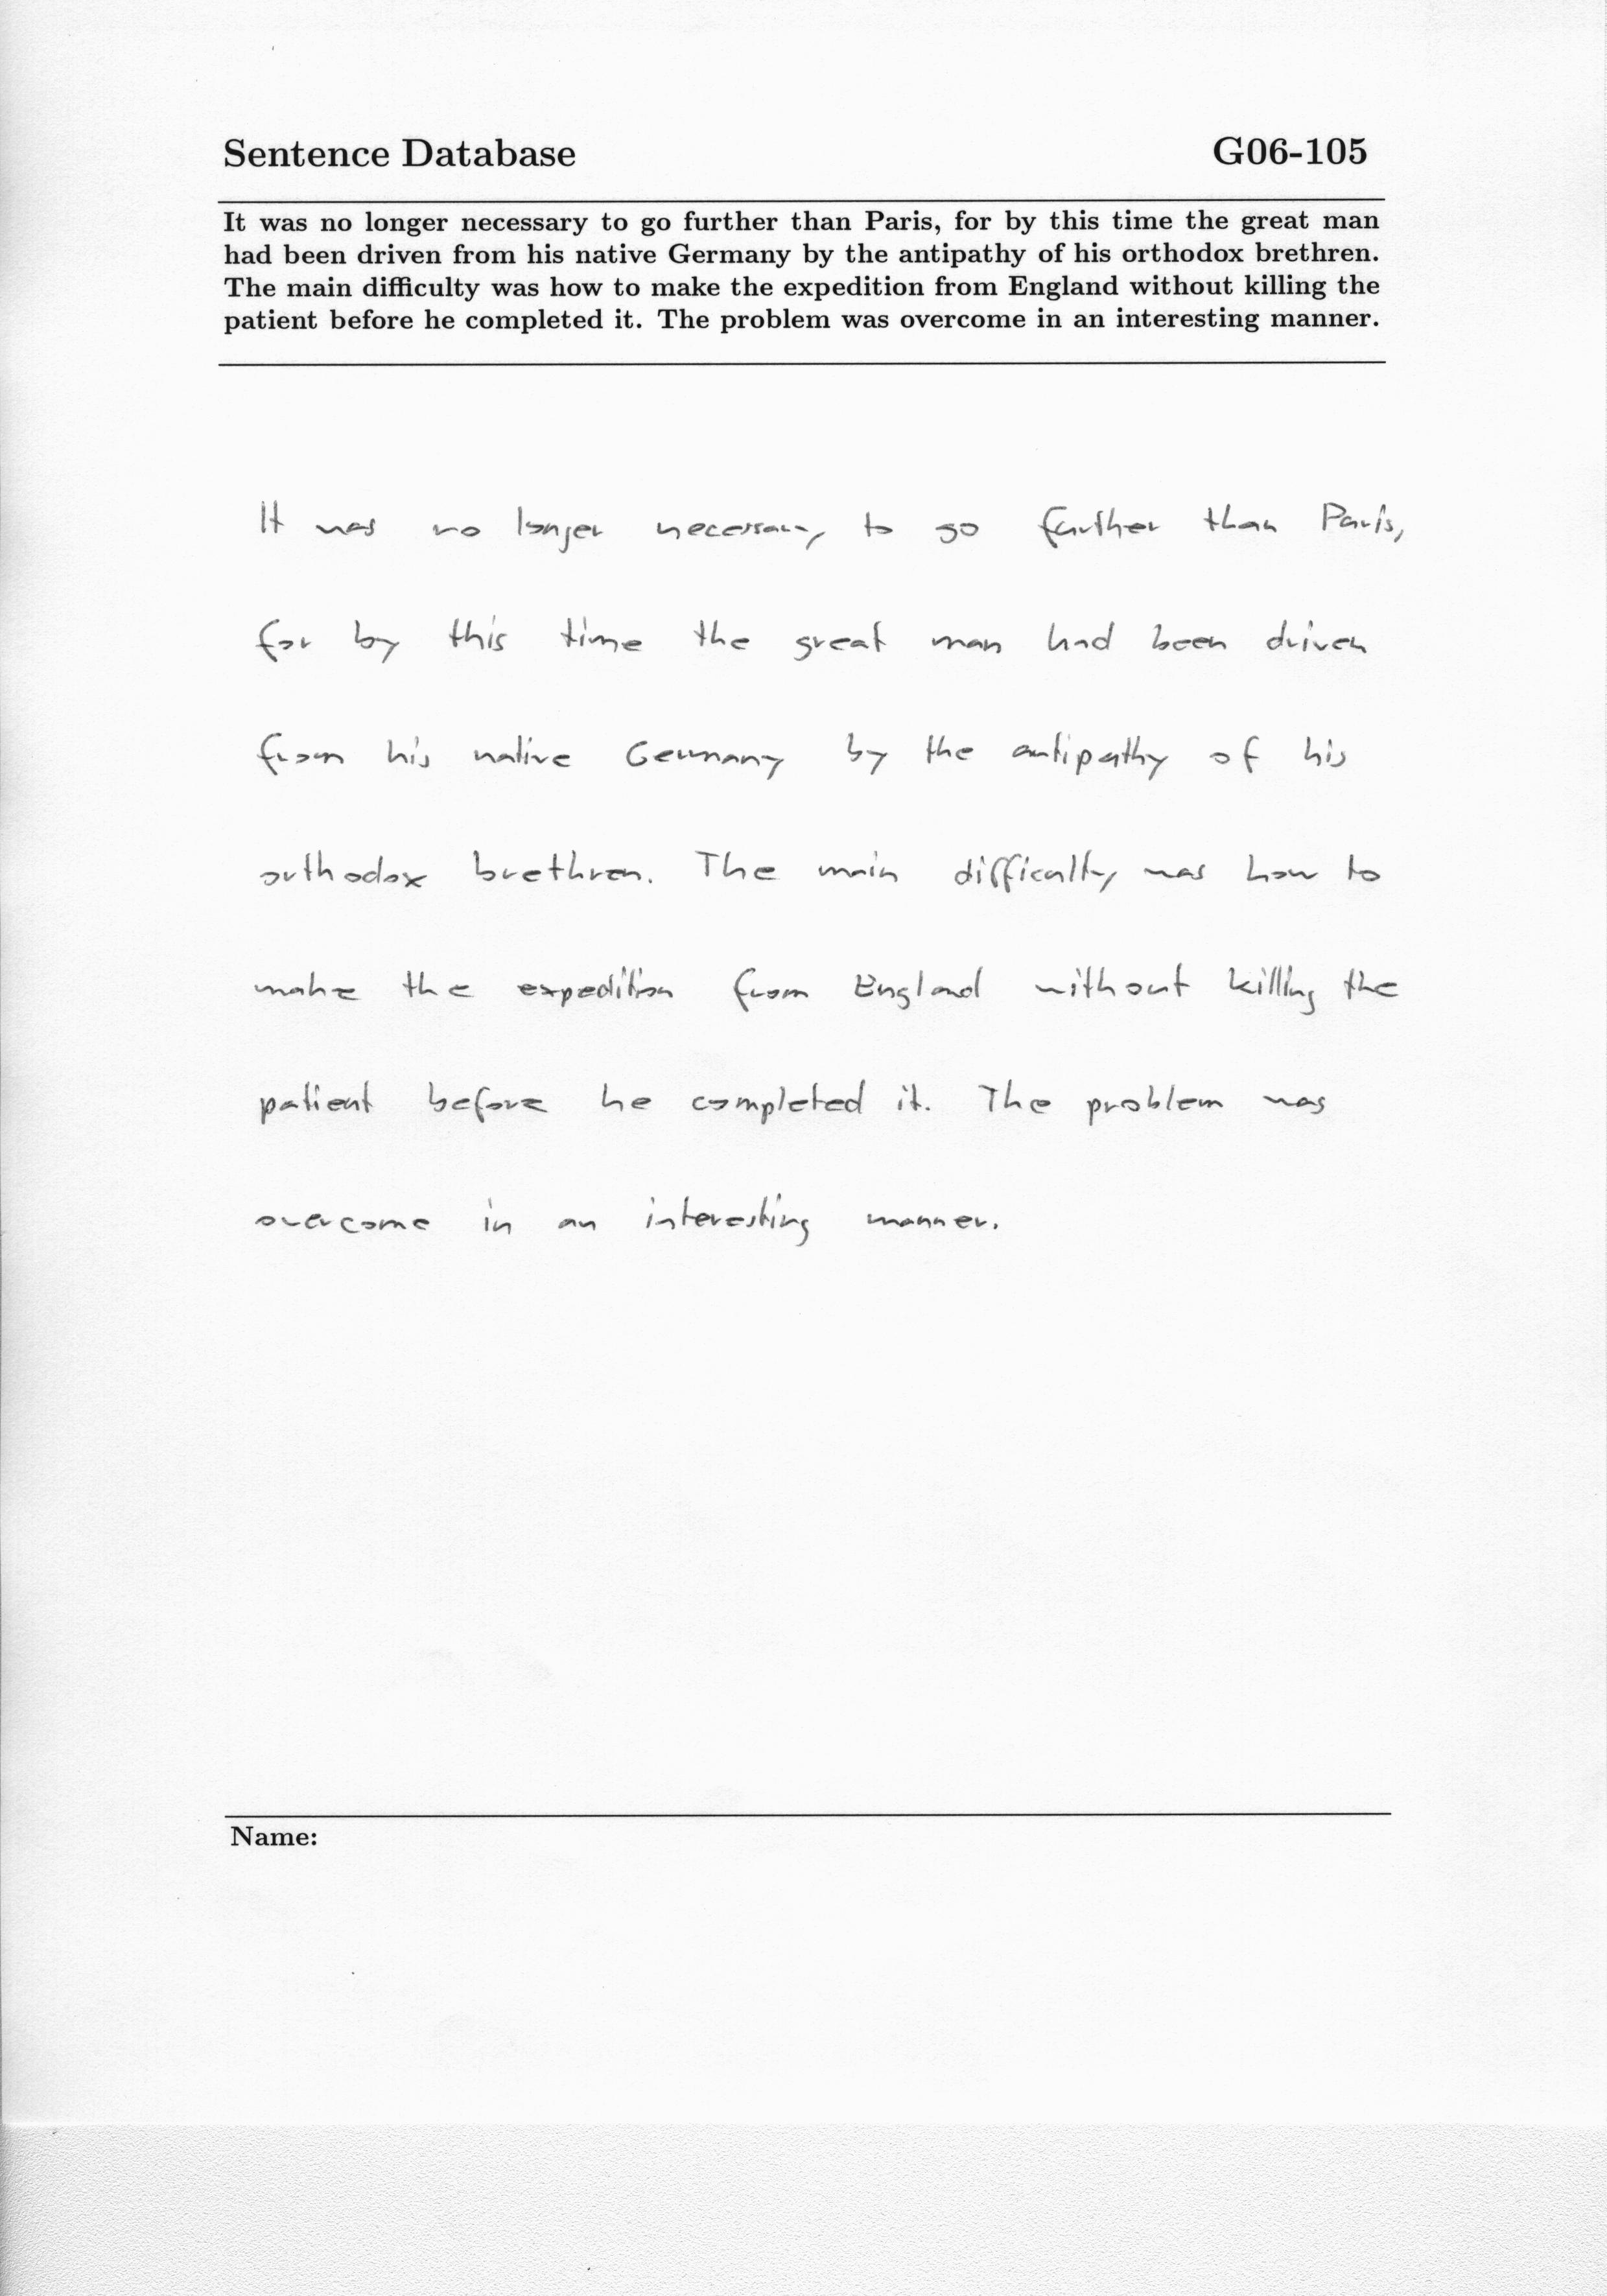 Sentence Database G06-105
It was no longer necessary to go further than Paris, for by this time the great man
had been driven from his native Germany by the antipathy of his orthodox brethren.
The main difficulty was how to make the expedition from England without killing the
patient before he completed it. The problem was overcome in an interesting manner.
It was no longer necessary to go further than Paris,
for by this time the great man had been driven
from his native Germany by the antipathy of his
orthodox brethren. The main difficulty was how to
make the expedition from England without killing the
patient before he completed it. The problem was
overcome in an interesting manner.
Name: